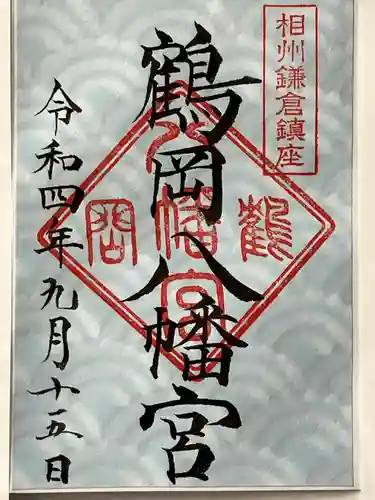 相州鎌倉鎮座
鶴岡八幡宮
鶴岡八幡宮
令和四年九月十五日